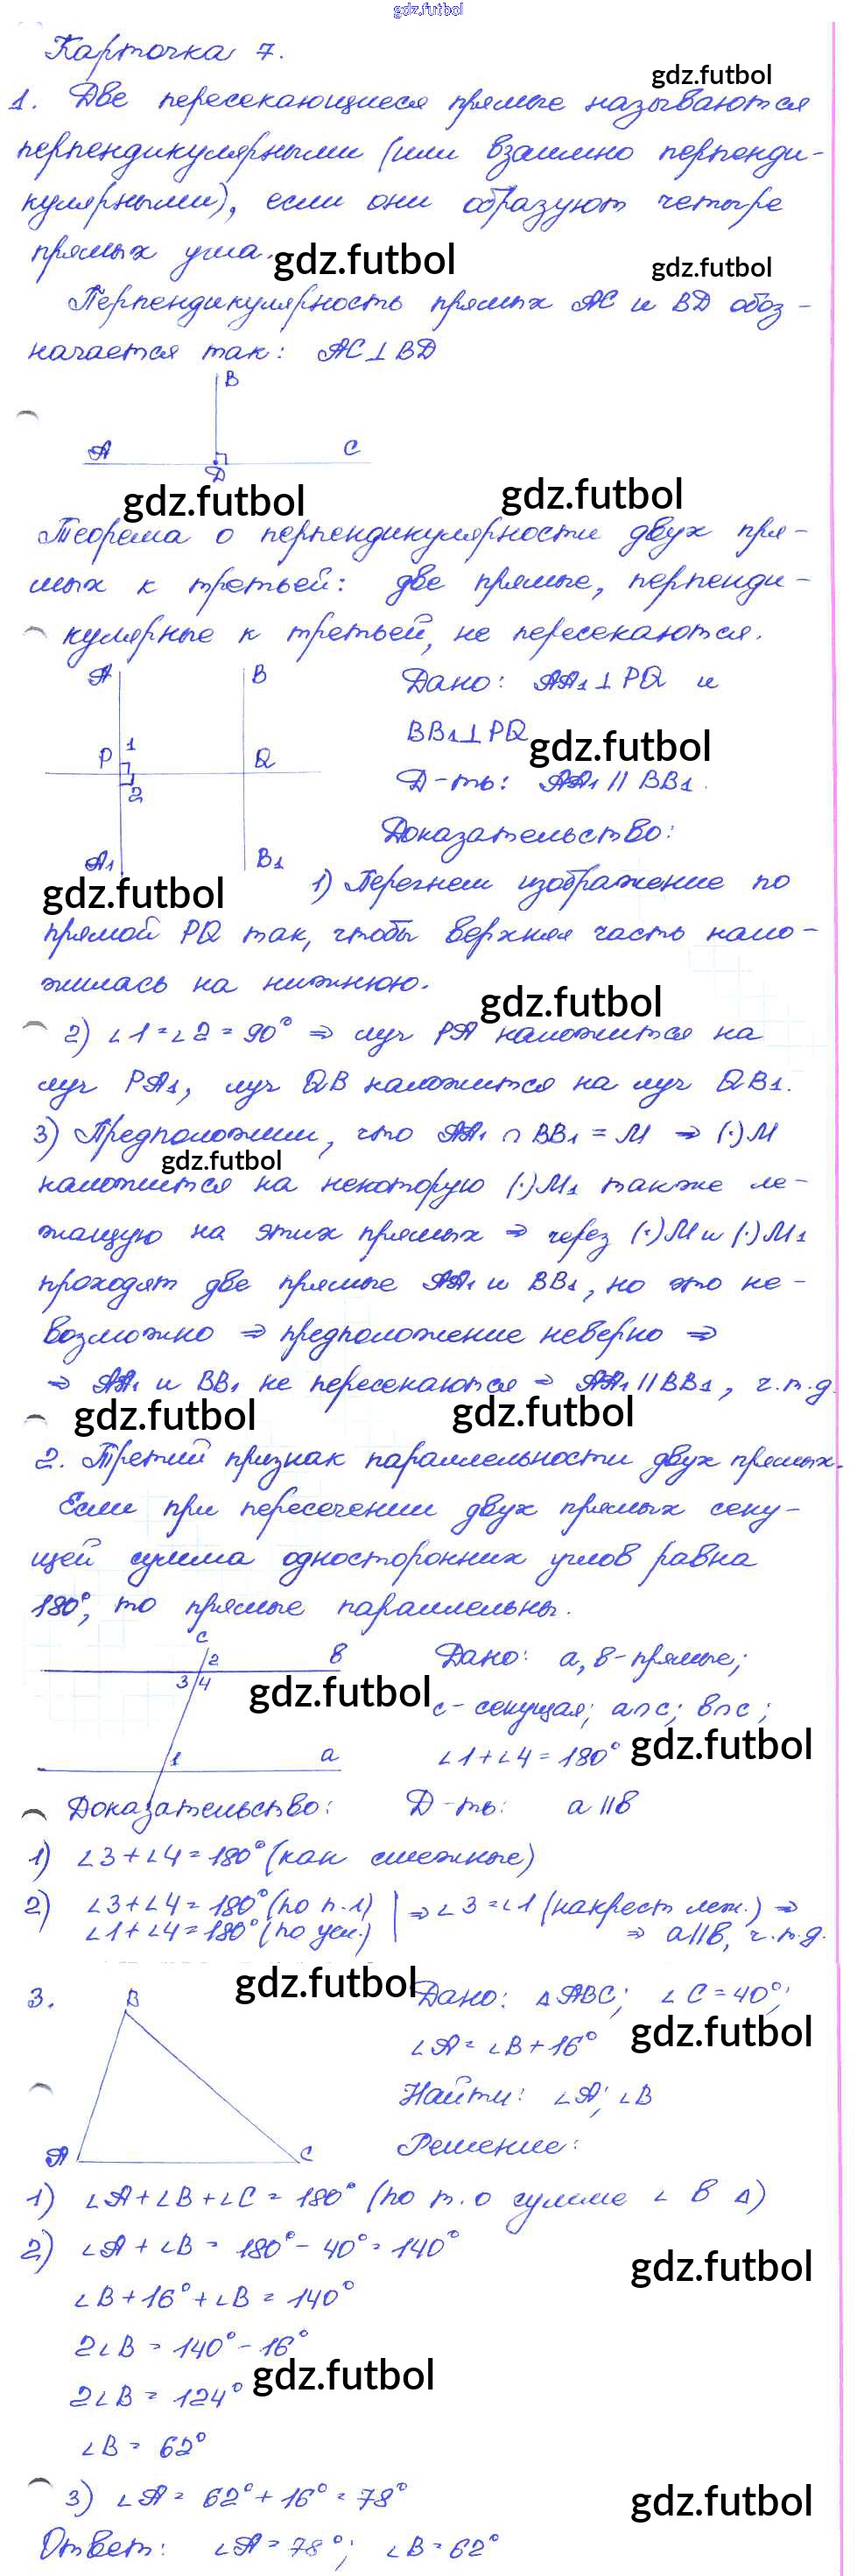 gdz.futbol
Карточка 7.
gdz.futbol
1. Две пересекающиеся прямые называются
перпендикулярными (или взаимно перпенди-
кулярными), если они образуют четыре
прямых угла.
gdz.futbol
gdz.futbol
Перпендикулярность прямых AC и BD обоз-
начается так: AC⊥BD
B
A
C
D
gdz.futbol
gdz.futbol
Теорема о перпендикулярности двух пря-
мых к третьей: две прямые, перпенди-
кулярные к третьей, не пересекаются.
A
B
Дано: AA₁⊥PQ и
BB₁⊥PQ
gdz.futbol
P
1
Q
2
Д-ть: AA₁ || BB₁.
Доказательство:
A₁
B₁
gdz.futbol
1) Перегнем изображение по
прямой PQ так, чтобы верхняя часть нало-
жилась на нижнюю.
gdz.futbol
2) ∠1=∠2=90° ⇒ луч PA наложится на
луч PA₁, луч QB наложится на луч QB₁.
3) Предположим, что AA₁ ∩ BB₁ = M ⇒ (·)M
gdz.futbol
наложится на некоторую (·)M₁ также ле-
жащую на этих прямых ⇒ через (·)M и (·)M₁
проходят две прямые AA₁ и BB₁, но это не-
возможно ⇒ предположение неверно ⇒
⇒ AA₁ и BB₁ не пересекаются ⇒ AA₁ || BB₁, ч.т.д.
gdz.futbol
gdz.futbol
2. Третий признак параллельности двух прямых.
Если при пересечении двух прямых секу-
щей сумма односторонних углов равна
180°, то прямые параллельны.
c
2
в
3
4
1
a
Дано: a, в-прямые;
gdz.futbol
c-секущая; a∩c; в∩c;
∠1+∠4=180°
gdz.futbol
Доказательство: Д-ть: a||в
1) ∠3+∠4=180° (как смежные)
2) ∠3+∠4=180° (по п.1) | ⇒ ∠3=∠1 (накрест леж.) ⇒
∠1+∠4=180° (по усл.) | ⇒ a||в, ч.т.д.
gdz.futbol
3.
B
A
C
Дано: △ABC; ∠C=40°;
∠A=∠B+16°
gdz.futbol
Найти: ∠A; ∠B
Решение:
1) ∠A+∠B+∠C=180° (по т. о сумме ∠ в △)
2) ∠A+∠B=180°-40°=140°
gdz.futbol
∠B+16°+∠B=140°
2∠B=140°-16°
gdz.futbol
2∠B=124°
∠B=62°
3) ∠A=62°+16°=78°
gdz.futbol
Ответ: ∠A=78°; ∠B=62°